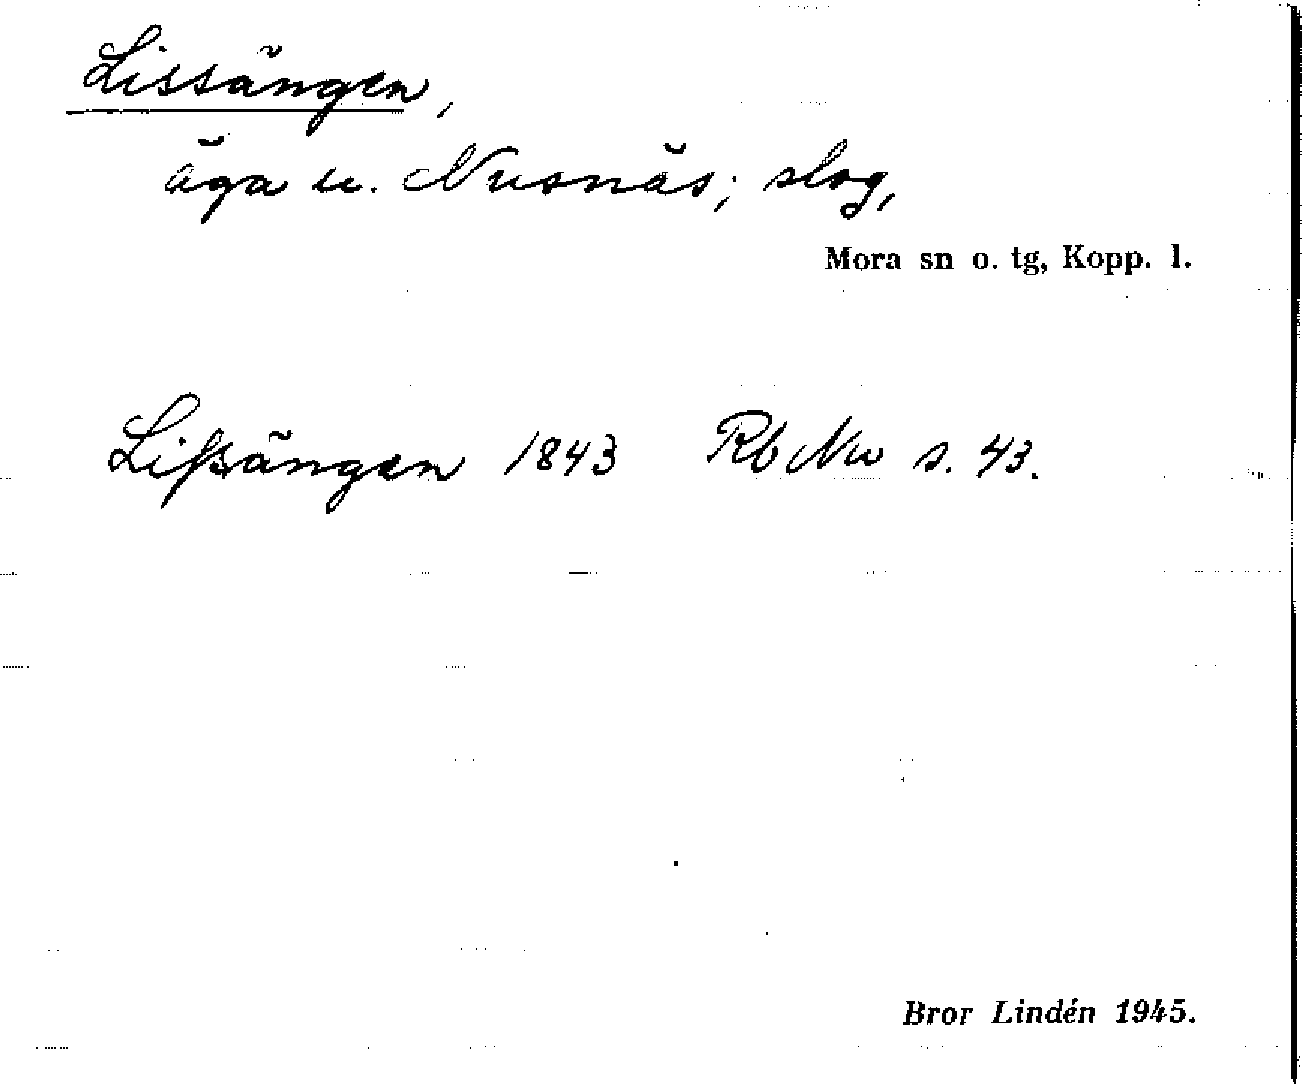 Lissängen,
äga u. Nusnäs; slog,
Mora sn o. tg, Kopp. l.
Lißängen 1843 Rb Nw s. 43.
Bror Lindén 1945.